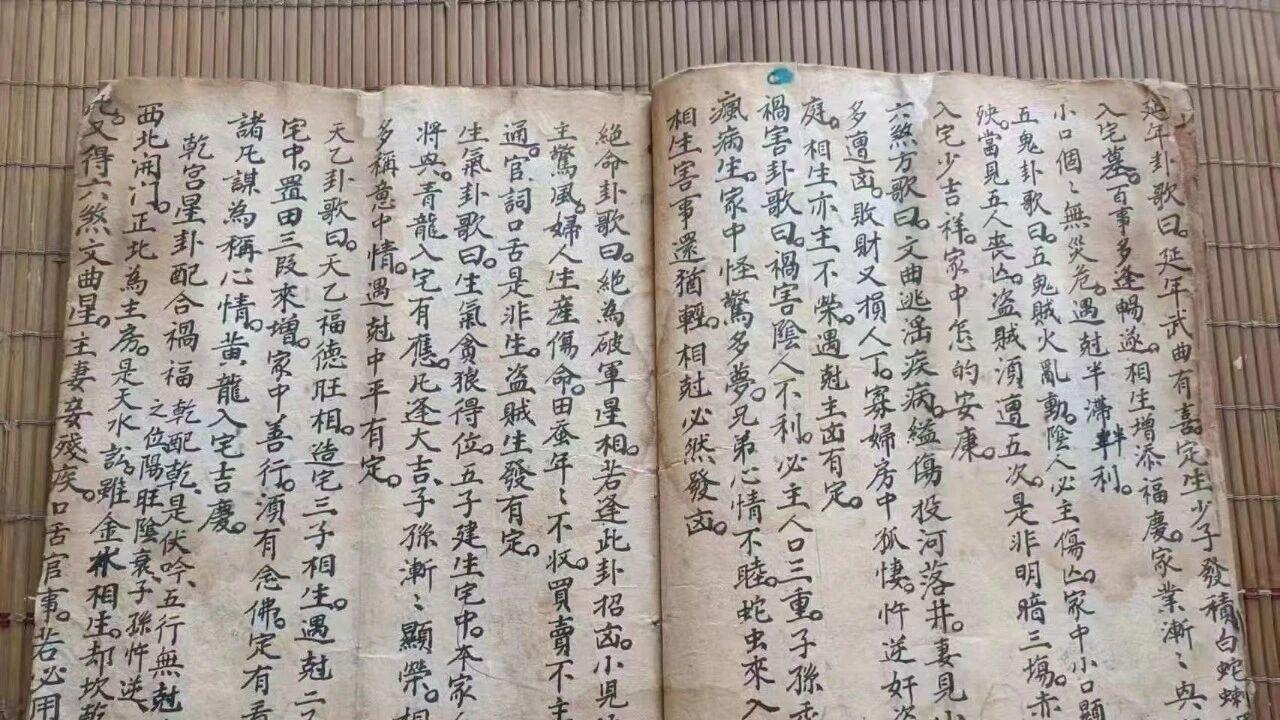 延年卦歌曰。延年武曲有喜。定生少子發積白蛇
入宅墓。百事多逢暢遂。相生增添福慶。家業漸〻興
小口個〻無災危。遇尅半滯半利。
五鬼卦歌曰。五鬼賊火亂動。陰人必主傷凶家中小口顯
殃。當見五人喪凶。盜賊須遭五次。是非明暗三塲。赤
入宅少吉祥。家中怎的安康。
六煞方歌曰。文曲逃滛疾病。縊傷投河落井。妻見小
多遭凶。敗財又損人丁。寡婦房中孤悽。忤逆奸盜
庭。相生亦主不榮。遇尅主凶有定。
禍害卦歌曰。禍害陰人不利。必主人口三重。子孫
瘋病生。家中怪驚多夢。兄弟心情不睦。蛇虫來入
相生害事還猶輕。相尅必然發凶。
絕命卦歌曰。絕為破軍星相。若逢此卦招凶小児
主驚風。婦人生産傷命。田蚕年〻不収。買賣不主
通。官詞口舌是非生。盜賊生發有定。
生氣卦歌曰。生氣貪狼得位。五子建生宅中。本家
將興。青龍入宅有應。凡逢大吉。子孫漸〻顯榮。相
多稱意中情。遇尅中平有定。
天乙卦歌曰。天乙福德旺相。造宅三子相生。遇尅二
宅中。置田三段來增。家中善行。須有念佛。定有
諸凡謀為稱心情。黃龍入宅吉慶。
乾宮星卦配合禍福 乾配乾、是伏吟、五行無尅
之位陽旺陰衰、子孫忤逆、
西北開门正北為主房。是天水訟。雖金水相生。却坎乾
此又得六煞文曲星。主妻妾殘疾。口舌官事。若必用